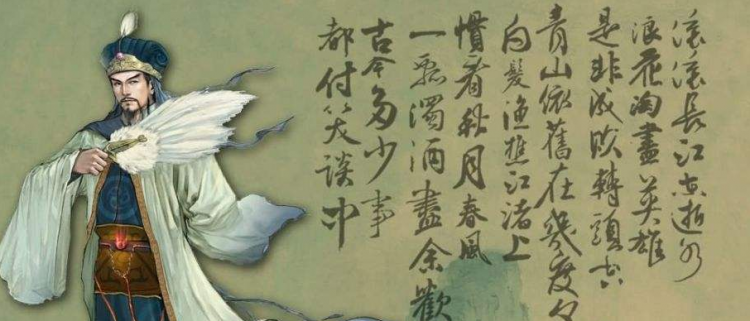 滚滚長江东逝水
浪花淘盡英雄
是非成败轉頭空
青山依舊在幾度夕
白髮渔樵江渚上
慣看秋月春風
一瓢濁酒盡余歡
古今多少事
都付笑談中